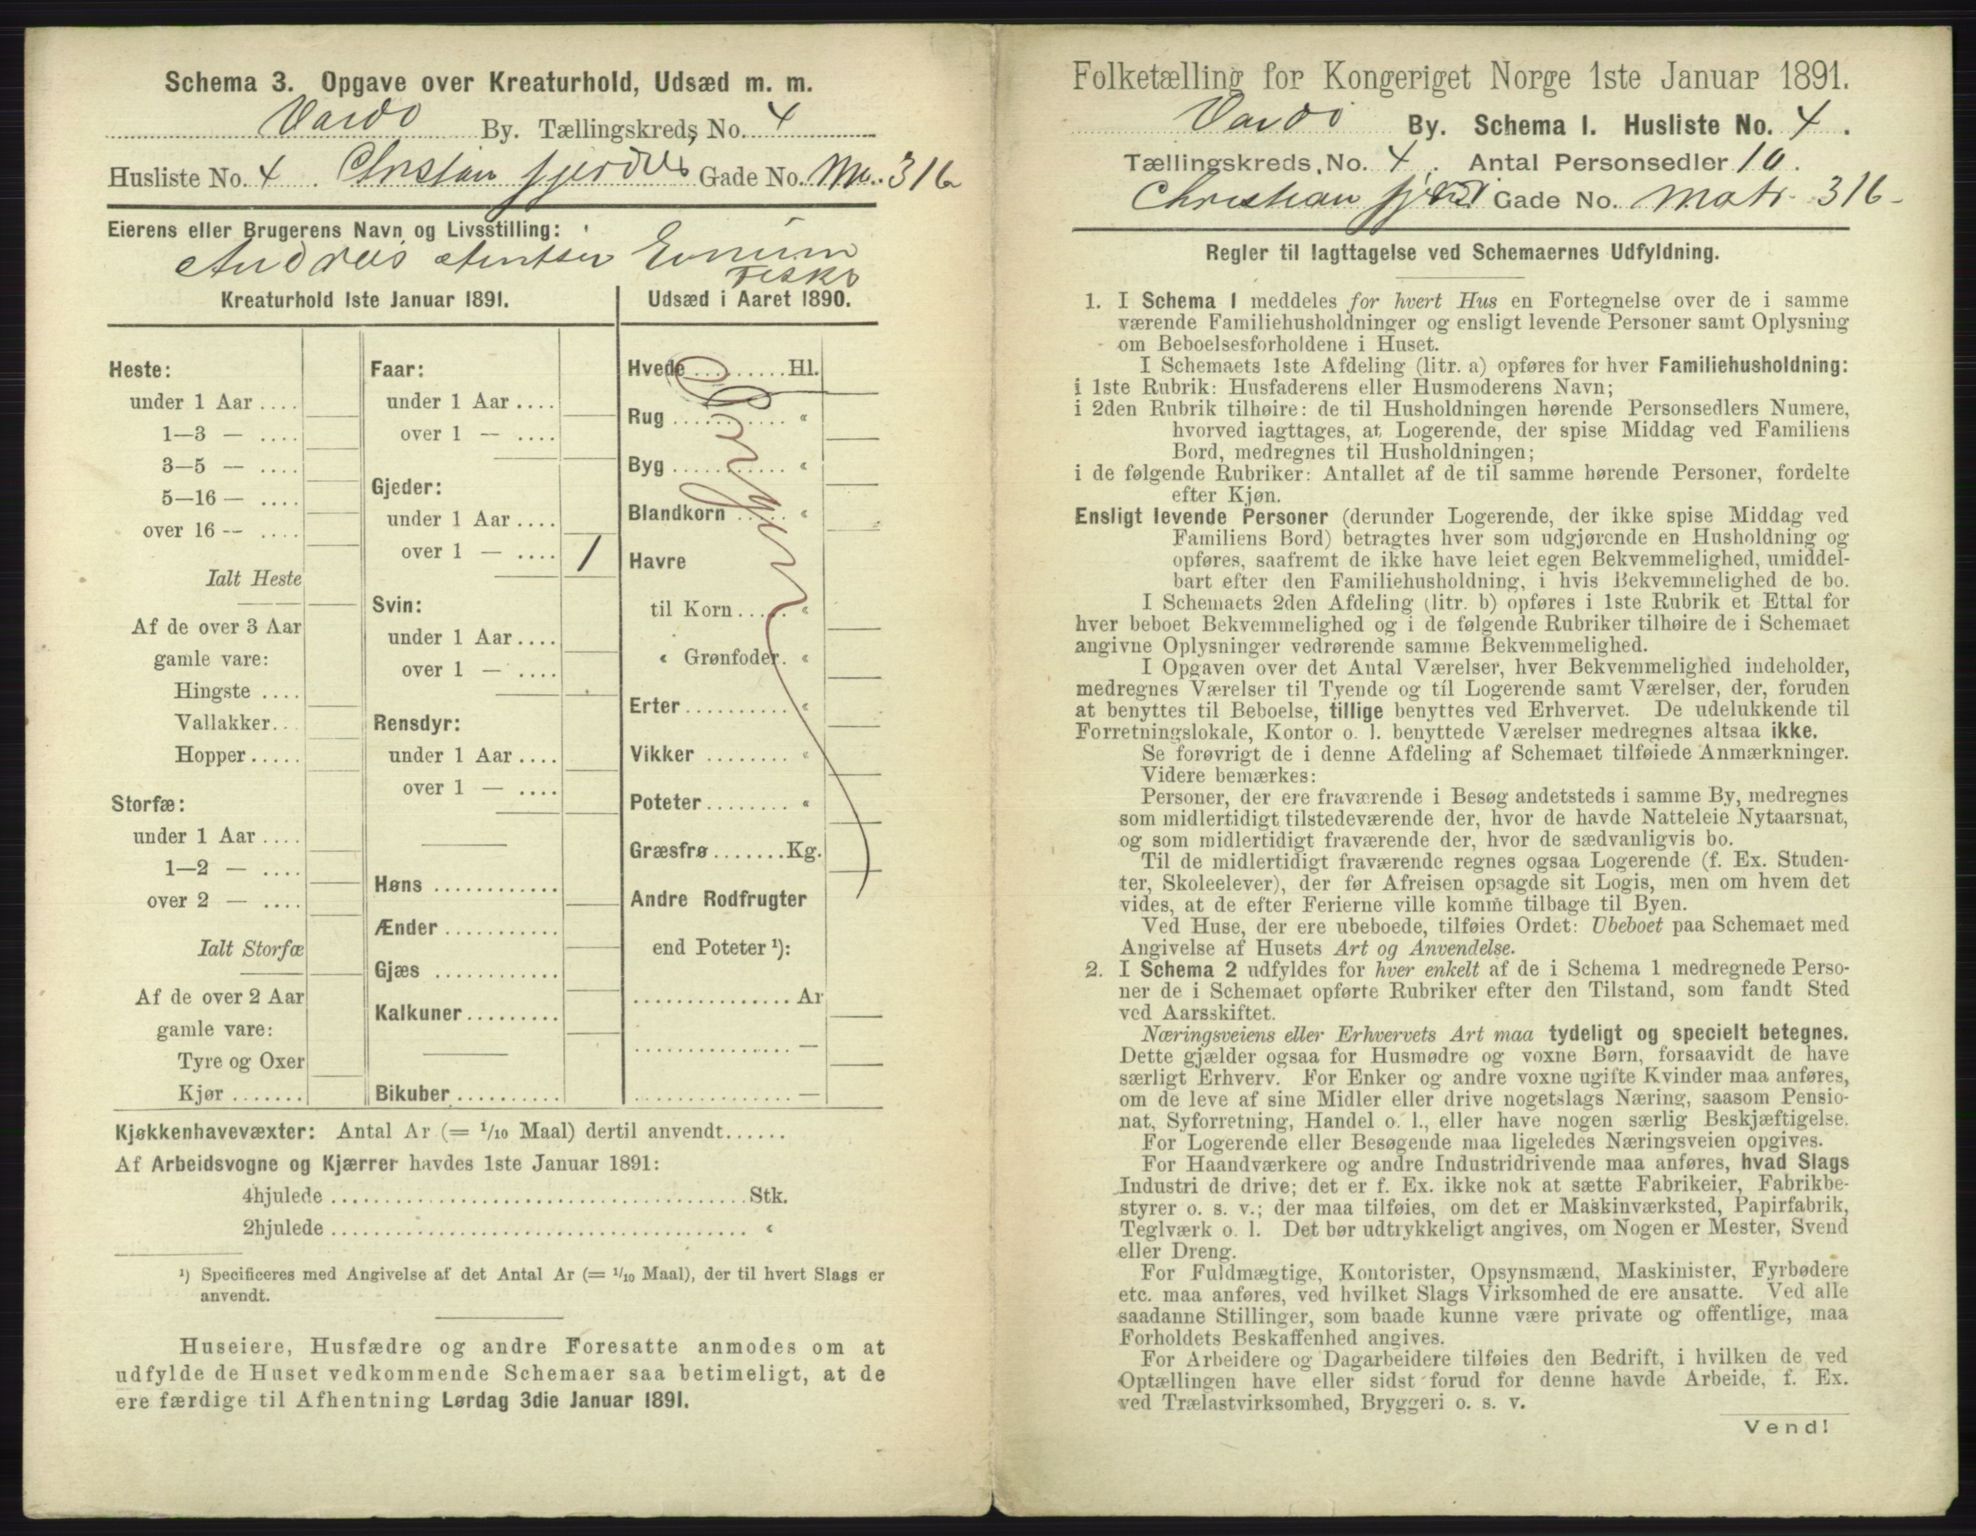 Schema 3. Opgave over Kreaturhold, Udsæd m. m.
Vardø By. Tællingskreds No. 4
Husliste No. 4 Christian fjerdes Gade No. M. 316
Eierens eller Brugerens Navn og Livsstilling:
Andreas Arntsen
Fisker
Kreaturhold 1ste Januar 1891.
Heste:
under 1 Aar ....
1—3 — ....
3—5 — ....
5—16 — ....
over 16 -- ....
Ialt Heste
Af de over 3 Aar
gamle vare:
Hingste ....
Vallakker...
Hopper.....
Storfæ:
under 1 Aar ....
1—2 — ....
over 2 — ....
Ialt Storfæ
Af de over 2 Aar
gamle vare:
Tyre og Oxer
Kjør .......
Faar:
under 1 Aar ....
over 1 — ....
Gjeder:
under 1 Aar ....
over 1 — .... 1
Svin:
under 1 Aar ....
over 1 — ....
Rensdyr:
under 1 Aar ....
over 1 — ....
Høns ............
Ænder ...........
Gjæs ............
Kalkuner.........
Bikuber ..........
Udsæd i Aaret 1890.
Hvede .........Hl.
Rug ............ «
Byg ............ «
Blandkorn ...... «
Havre
til Korn ..... «
« Grønfoder. «
Erter.......... «
Vikker ........ «
Poteter........ «
Græsfrø .......Kg.
Andre Rodfrugter
end Poteter ¹):
............... Ar
............... —
............... —
Kjøkkenhavevæxter: Antal Ar (= 1/10 Maal) dertil anvendt......
Af Arbeidsvogne og Kjærrer havdes 1ste Januar 1891:
4hjulede ........................................Stk.
2hjulede ....................................... «
¹) Specificeres med Angivelse af det Antal Ar (= 1/10 Maal), der til hvert Slags er
anvendt.
Huseiere, Husfædre og andre Foresatte anmodes om at
udfylde de Huset vedkommende Schemaer saa betimeligt, at de
ere færdige til Afhentning Lørdag 3die Januar 1891.
Folketælling for Kongeriget Norge 1ste Januar 1891.
Vardø By. Schema I. Husliste No. 4.
Tællingskreds, No. 4. Antal Personsedler 10.
Christian fjerdes Gade No. Matr. 316
Regler til Iagttagelse ved Schemaernes Udfyldning.
1. I Schema 1 meddeles for hvert Hus en Fortegnelse over de i samme
værende Familiehusholdninger og ensligt levende Personer samt Oplysning
om Beboelsesforholdene i Huset.
I Schemaets 1ste Afdeling (litr. a) opføres for hver Familiehusholdning:
i 1ste Rubrik: Husfaderens eller Husmoderens Navn;
i 2den Rubrik tilhøire: de til Husholdningen hørende Personsedlers Numere,
hvorved iagttages, at Logerende, der spise Middag ved Familiens
Bord, medregnes til Husholdningen;
i de følgende Rubriker: Antallet af de til samme hørende Personer, fordelte
efter Kjøn.
Ensligt levende Personer (derunder Logerende, der ikke spise Middag ved
Familiens Bord) betragtes hver som udgjørende en Husholdning og
opføres, saafremt de ikke have leiet egen Bekvemmelighed, umiddel-
bart efter den Familiehusholdning, i hvis Bekvemmelighed de bo.
I Schemaets 2den Afdeling (litr. b) opføres i 1ste Rubrik et Ettal for
hver beboet Bekvemmelighed og i de følgende Rubriker tilhøire de i Schemaet
angivne Oplysninger vedrørende samme Bekvemmelighed.
I Opgaven over det Antal Værelser, hver Bekvemmelighed indeholder,
medregnes Værelser til Tyende og til Logerende samt Værelser, der, foruden
at benyttes til Beboelse, tillige benyttes ved Erhvervet. De udelukkende til
Forretningslokale, Kontor o. l. benyttede Værelser medregnes altsaa ikke.
Se forøvrigt de i denne Afdeling af Schemaet tilføiede Anmærkninger.
Videre bemærkes:
Personer, der ere fraværende i Besøg andetsteds i samme By, medregnes
som midlertidigt tilstedeværende der, hvor de havde Natteleie Nytaarsnat,
og som midlertidigt fraværende der, hvor de sædvanligvis bo.
Til de midlertidigt fraværende regnes ogsaa Logerende (f. Ex. Studen-
ter, Skoleelever), der før Afreisen opsagde sit Logis, men om hvem det
vides, at de efter Ferierne ville komme tilbage til Byen.
Ved Huse, der ere ubeboede, tilføies Ordet: Ubeboet paa Schemaet med
Angivelse af Husets Art og Anvendelse.
2. I Schema 2 udfyldes for hver enkelt af de i Schema 1 medregnede Perso-
ner de i Schemaet opførte Rubriker efter den Tilstand, som fandt Sted
ved Aarsskiftet.
Næringsveiens eller Erhvervets Art maa tydeligt og specielt betegnes.
Dette gjælder ogsaa for Husmødre og voxne Børn, forsaavidt de have
særligt Erhverv. For Enker og andre voxne ugifte Kvinder maa anføres,
om de leve af sine Midler eller drive nogetslags Næring, saasom Pensio-
nat, Syforretning, Handel o. l., eller have nogen særlig Beskjæftigelse.
For Logerende eller Besøgende maa ligeledes Næringsveien opgives.
For Haandværkere og andre Industridrivende maa anføres, hvad Slags
Industri de drive; det er f. Ex. ikke nok at sætte Fabrikeier, Fabrikbe-
styrer o. s. v.; der maa tilføies, om det er Maskinværksted, Papirfabrik,
Teglværk o. l. Det bør udtrykkeligt angives, om Nogen er Mester, Svend
eller Dreng.
For Fuldmægtige, Kontorister, Opsynsmænd, Maskinister, Fyrbødere
etc. maa anføres, ved hvilket Slags Virksomhed de ere ansatte. Ved alle
saadanne Stillinger, som baade kunne være private og offentlige, maa
Forholdets Beskaffenhed angives.
For Arbeidere og Dagarbeidere tilføies den Bedrift, i hvilken de ved
Optællingen have eller sidst forud for denne havde Arbeide, f. Ex.
ved Trælastvirksomhed, Bryggeri o. s. v.
Vend!